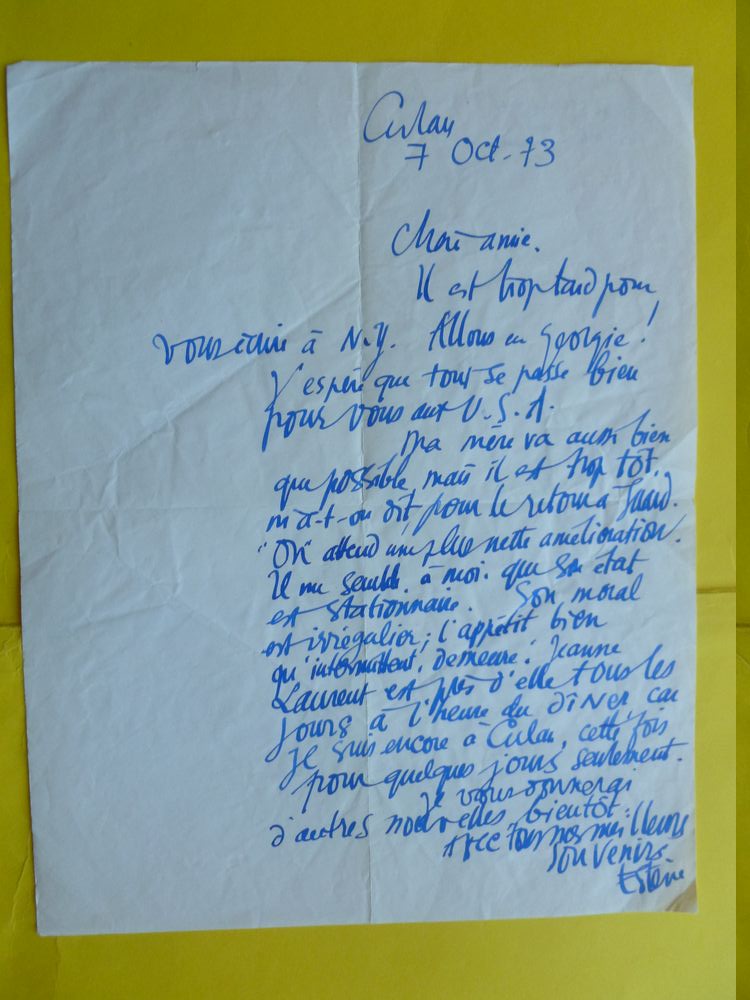 Culan
7 Oct. 73
Chère amie.
Il est trop tard pour
vous écrire à N.Y. Allons en Georgie !
J'espère que tout se passe bien
pour vous aux U.S.A.
Ma mère va aussi bien
que possible, mais il est trop tôt,
m'a-t-on dit, pour le retour à
"On" attend une plus nette amélioration.
Il me semble, à moi, que son état
est stationnaire. Son moral
est irrégulier ; l'appétit bien
qu'intermittent, demeure. Jeanne
Laurent est près d'elle tous les
jours à l'heure du dîner car
je suis encore à Culan, cette fois
pour quelques jours seulement.
Je vous donnerai
d'autres nouvelles bientôt.
Avec tous nos meilleurs
souvenirs.
Estève